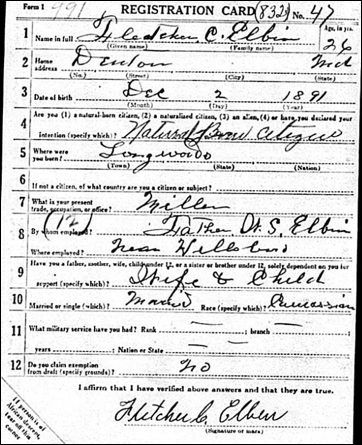 Form 1 REGISTRATION CARD (832) No. 47
1 Name in full Fletcher C. Elbin Age, in yrs
(Given name) (Family name) 26
2 Home address Denton Md
(No.) (Street) (City) (State)
3 Date of birth Dec 2 1891
(Month) (Day) (Year)
4 Are you (1) a natural-born citizen, (2) a naturalized citizen, (3) an alien, (4) or have you declared your
intention (specify which)? Natural Born Citizen
5 Where were you born? Longwood
(Town) (State) (Nation)
6 If not a citizen, of what country are you a citizen or subject?
7 What is your present trade, occupation, or office? Miller
8 By whom employed? Father W. S. Elbin
Where employed? Near
9 Have you a father, mother, wife, child under 12, or a sister or brother under 12, solely dependent on you for
support (specify which)? Wife & Child
10 Married or single (which)? Married Race (specify which)? Caucasian
11 What military service have you had? Rank — ; branch —
years — ; Nation or State —
12 Do you claim exemption from draft (specify grounds)? No
I affirm that I have verified above answers and that they are true.
Fletcher C Elben
(Signature or mark)
If person is of African descent, tear off this corner